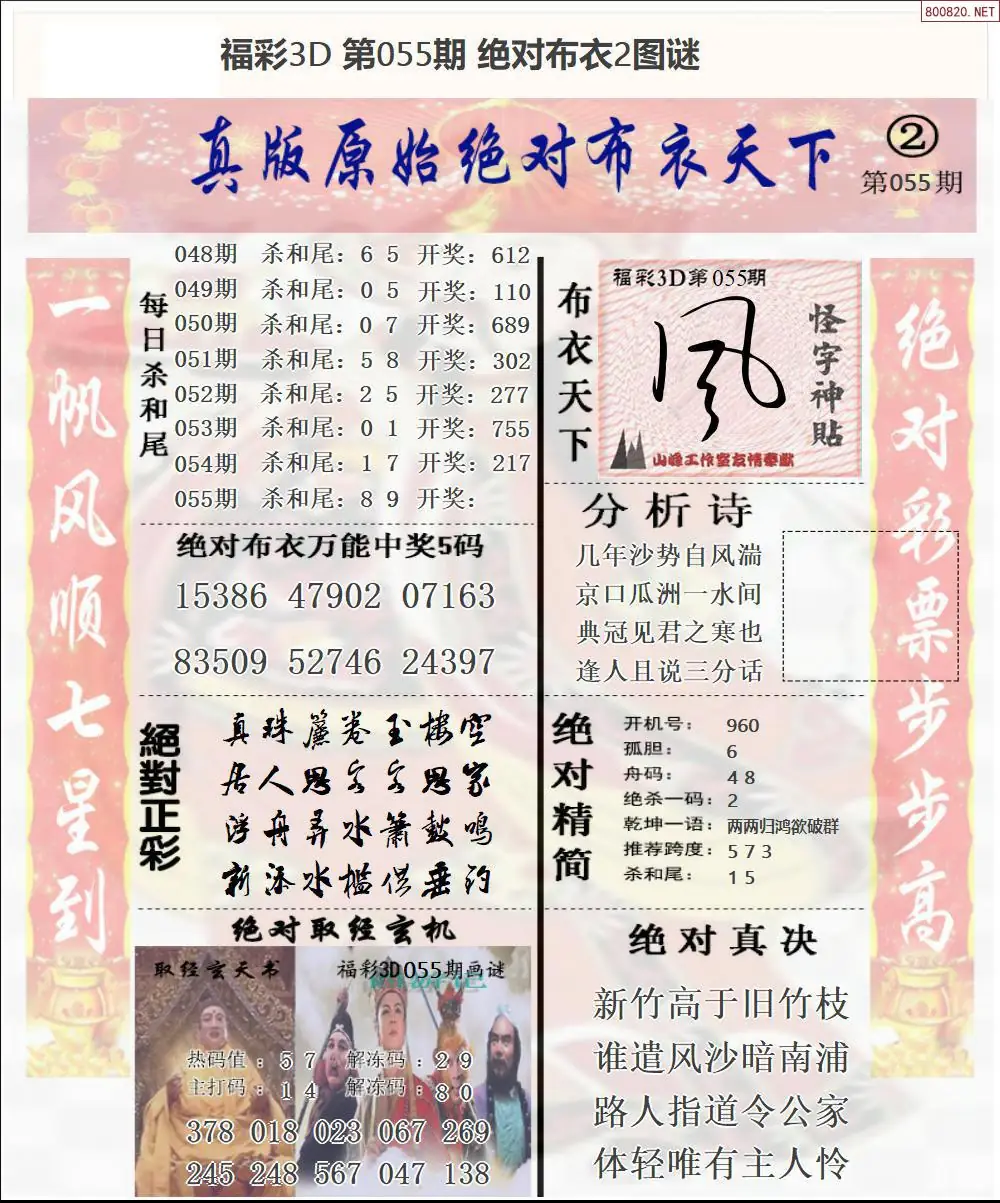 800820.NET
福彩3D 第055期 绝对布衣2图谜
真版原始绝对布衣天下
②
第055期
一帆风顺七星到
每日杀和尾
048期 杀和尾：6 5 开奖：612
049期 杀和尾：0 5 开奖：110
050期 杀和尾：0 7 开奖：689
051期 杀和尾：5 8 开奖：302
052期 杀和尾：2 5 开奖：277
053期 杀和尾：0 1 开奖：755
054期 杀和尾：1 7 开奖：217
055期 杀和尾：8 9 开奖：
绝对布衣万能中奖5码
15386 47902 07163
83509 52746 24397
絕對正彩
真珠簾卷玉楼空
居人思客客思家
浮舟弄水箫鼓鸣
新添水槛供垂钓
绝对取经玄机
取经玄天书
福彩3D055期画谜
热码值：5 7 解冻码：2 9
主打码：1 4 解冻码：8 0
378 018 023 067 269
245 248 567 047 138
布衣天下
福彩3D第055期
风
怪字神贴
山峰工作室友情奉献
分析诗
几年沙势自风湍
京口瓜洲一水间
典冠见君之寒也
逢人且说三分话
绝对精简
开机号：960
孤胆：6
舟码：4 8
绝杀一码：2
乾坤一语：两两归鸿欲破群
推荐跨度：5 7 3
杀和尾：1 5
绝对真决
新竹高于旧竹枝
谁遣风沙暗南浦
路人指道令公家
体轻唯有主人怜
绝对彩票步步高